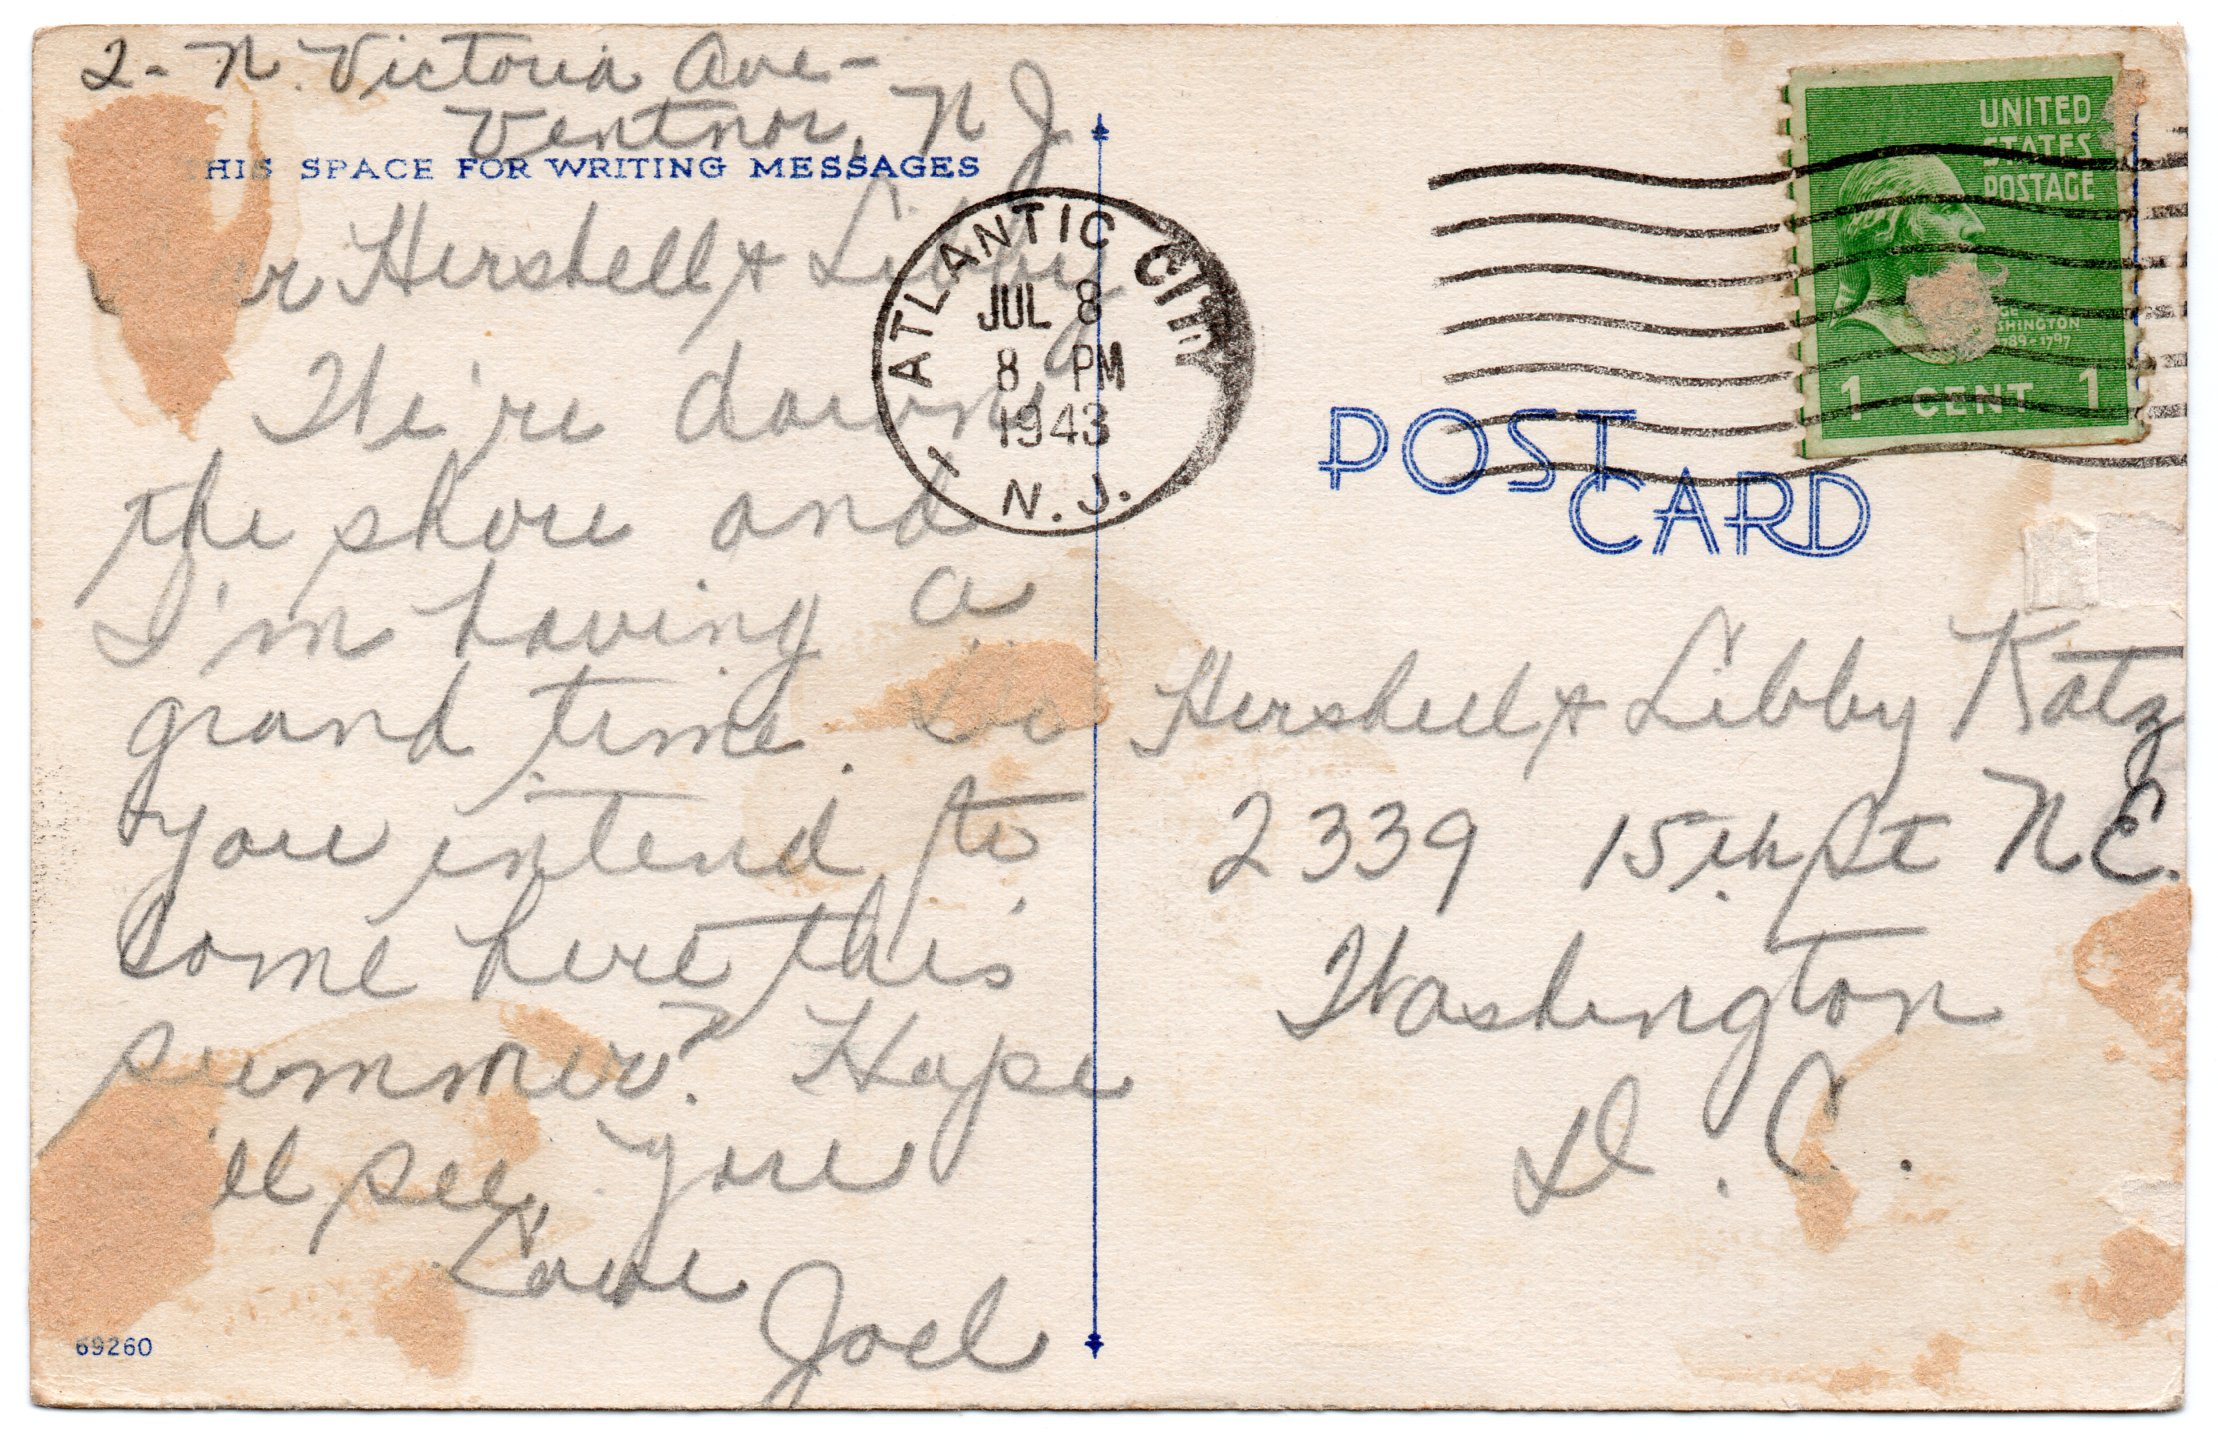 2 - N. Victoria Ave -
Ventnor, N J
HIS SPACE FOR WRITING MESSAGES
ar Hershell & Libby
We're down
the shore and
I'm having a
grand time. Do
you intend to
come here this
summer? Hope
ll see you
Love
Joel
69260
ATLANTIC CITY
JUL 8
8 PM
1943
1
N.J.
UNITED
STATES
POSTAGE
SHINGTON
1789-1797
1 CENT 1
POST
CARD
Hershell & Libby Katz
2339 15th St N E.
Washington
D. C.